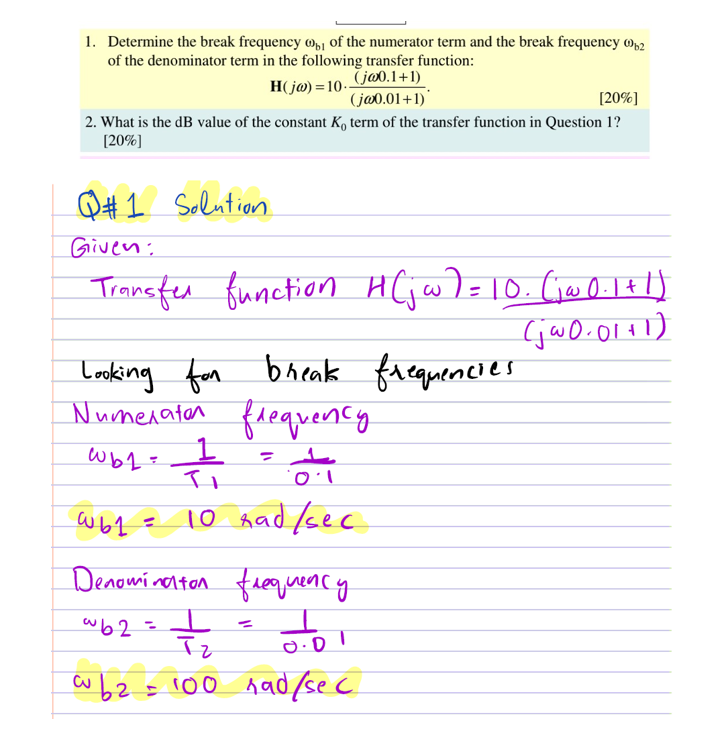 1. Determine the break frequency ωb1 of the numerator term and the break frequency ωb2
of the denominator term in the following transfer function:
H(jω) = 10 · (jω0.1+1) / (jω0.01+1). [20%]
2. What is the dB value of the constant K0 term of the transfer function in Question 1?
[20%]
Q#1 Solution
Given:
Transfer function H(jω) = 10. (jω0.1+1)
(jω0.01+1)
Looking for break frequencies
Numerator frequency
ωb1 = 1/T1 = 1/0.1
ωb1 = 10 rad/sec
Denominator frequency
ωb2 = 1/T2 = 1/0.01
ωb2 = 100 rad/sec